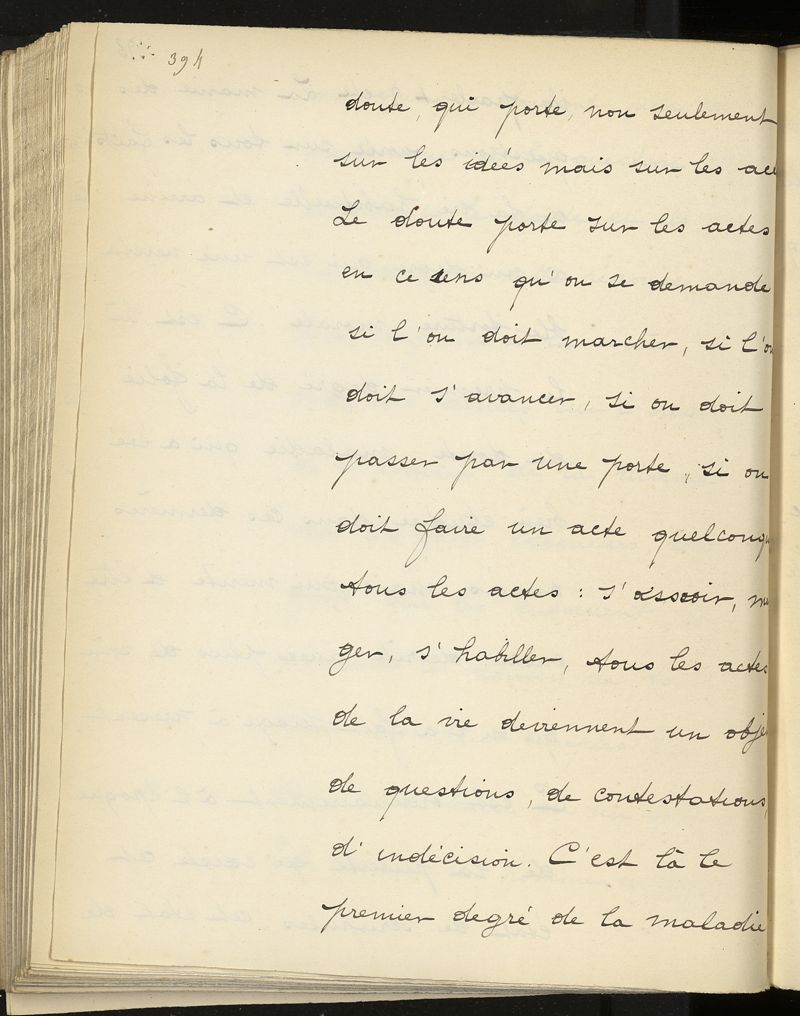 394
doute, qui porte, non seulement
sur les idées mais sur les
Le doute porte sur les actes
en ce sens qu'on se demande
si l'on doit marcher, si l'on
doit s'avancer, si on doit
passer par une porte, si on
doit faire un acte quelconqu
tous les actes : s'asseoir, m
ger, s'habiller, tous les actes
de la vie deviennent un obje
de questions, de contestations,
d'indécision. C'est là le
premier degré de la maladie